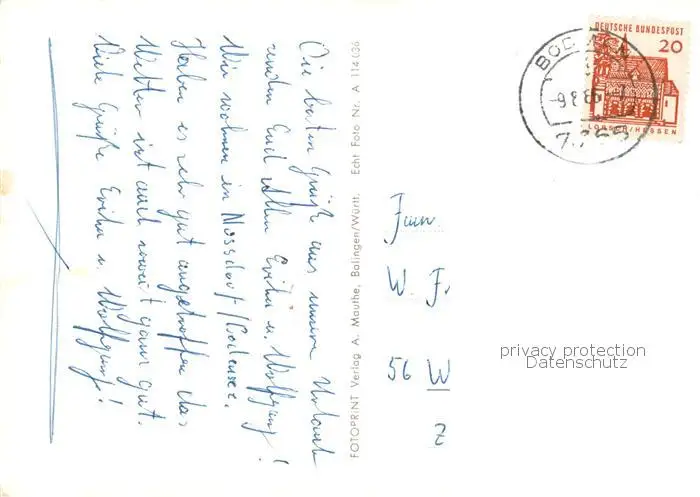 Die besten Grüße aus unserem Urlaub
senden Euch Allen Erika u. Wolfgang!
Wir wohnen in Nussdorf/Bodensee.
Haben es sehr gut angetroffen das
Wetter ist auch soweit ganz gut.
Viele Grüße Erika u. Wolfgang!
FOTOPRINT Verlag A. Mauthe, Balingen/Württ. Echt Foto Nr. A 114 036
DEUTSCHE BUNDESPOST
20
LORSCH/HESSEN
W. F.
56 W
Z
privacy protection
Datenschutz